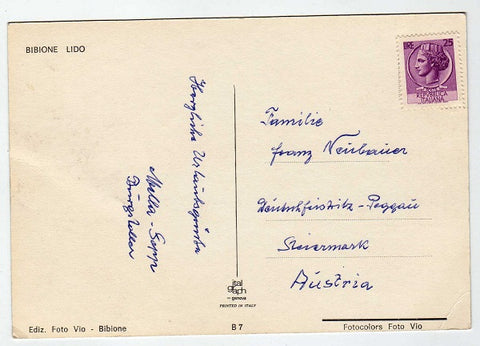 BIBIONE LIDO
LIRE 25
REPUBBLICA
ITALIANA
Herzliche Urlaubsgrüße
Mella - Sepp
Familie
Franz Neubauer
Deutschfeistritz - Peggau
Steiermark
Austria
ital
graph
genova
PRINTED IN ITALY
Ediz. Foto Vio - Bibione
B 7
Fotocolors Foto Vio